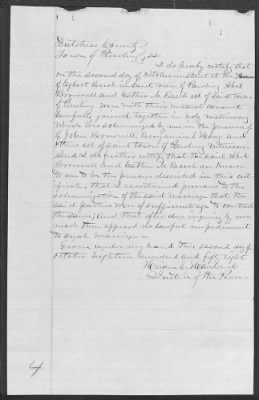 Dutchess County
Town of Pawling SS
I do hereby certify that
on the second day of October instant at the
of Egbert Leach in said town of Pawling Abel
Brownell and Esther M. Leach all of said town
of Pawling were with their mutual consent
lawfully joined together in holy matrimony
which was solemnized by me in the presence
of John Brownell, Benjamin and
others all of said town of Pawling Witnesses
And I do further certify that the said Abel
Brownell and Esther M. Leach are known
to me to be the persons described in this certi-
ficate; that I ascertained previous to the
solemnization of the said marriage that the
said parties were of sufficient age to contract
the same; And that after due inquiry by me
made there appeared no lawful impediment
to such marriage.
Given under my hand this second day of
October Eighteen hundred and fifty eight
Justice of the Peace
4